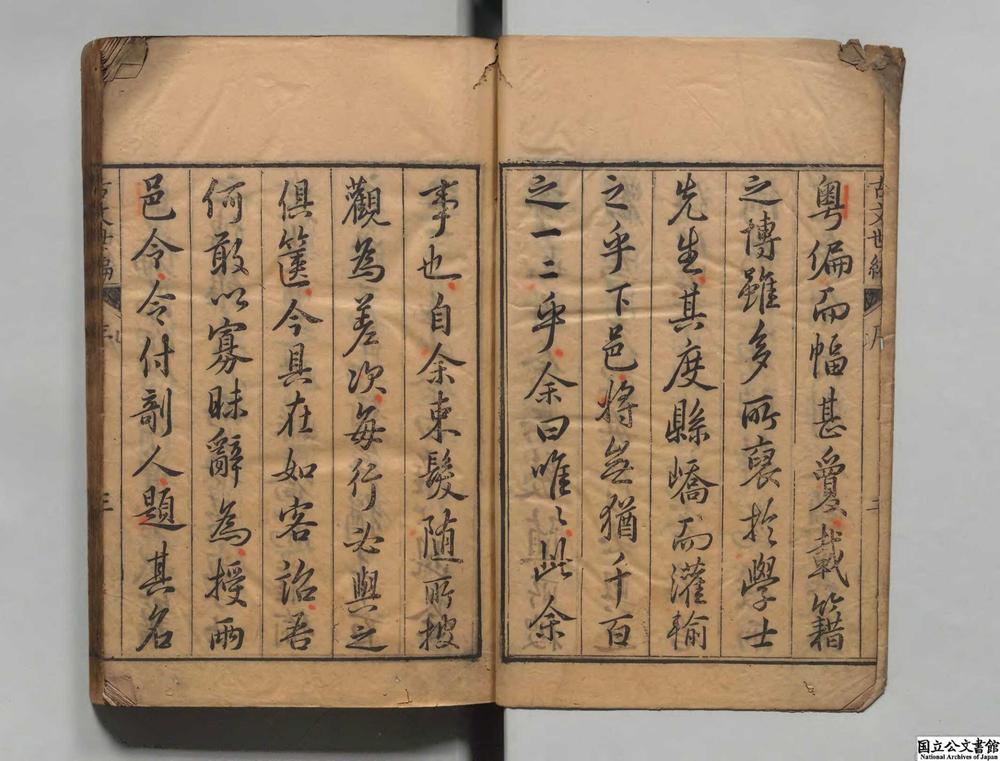 粵偏而幅甚夐載籍
之博雖多所裒於學士
先生其度縣嶠而灌輸
之乎下邑將無猶千百
之一二乎余曰唯〻此余
事也自余束髮随所搜
觀為差次每行必與之
俱篋今具在如客詒吾
何敢以寡昧辭為授兩
邑令令付剞人題其名
古文世編
序
二
古文世編
序
三
国立公文書館
National Archives of Japan